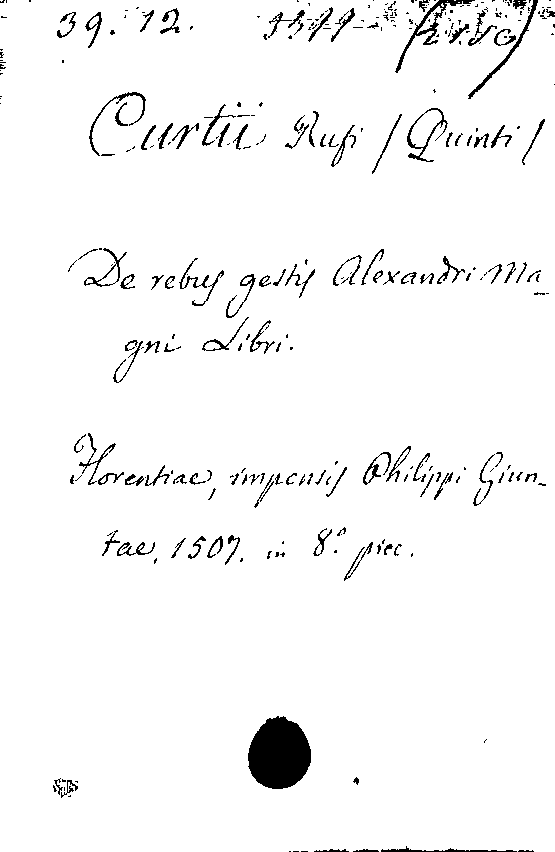 39. 12.
Curtii Rufi / Quinti /
De rebus gestis Alexandri Ma-
gni Libri.
Florentiae, impensis Philippi Giun-
tae, 1507. in 8.° picc.